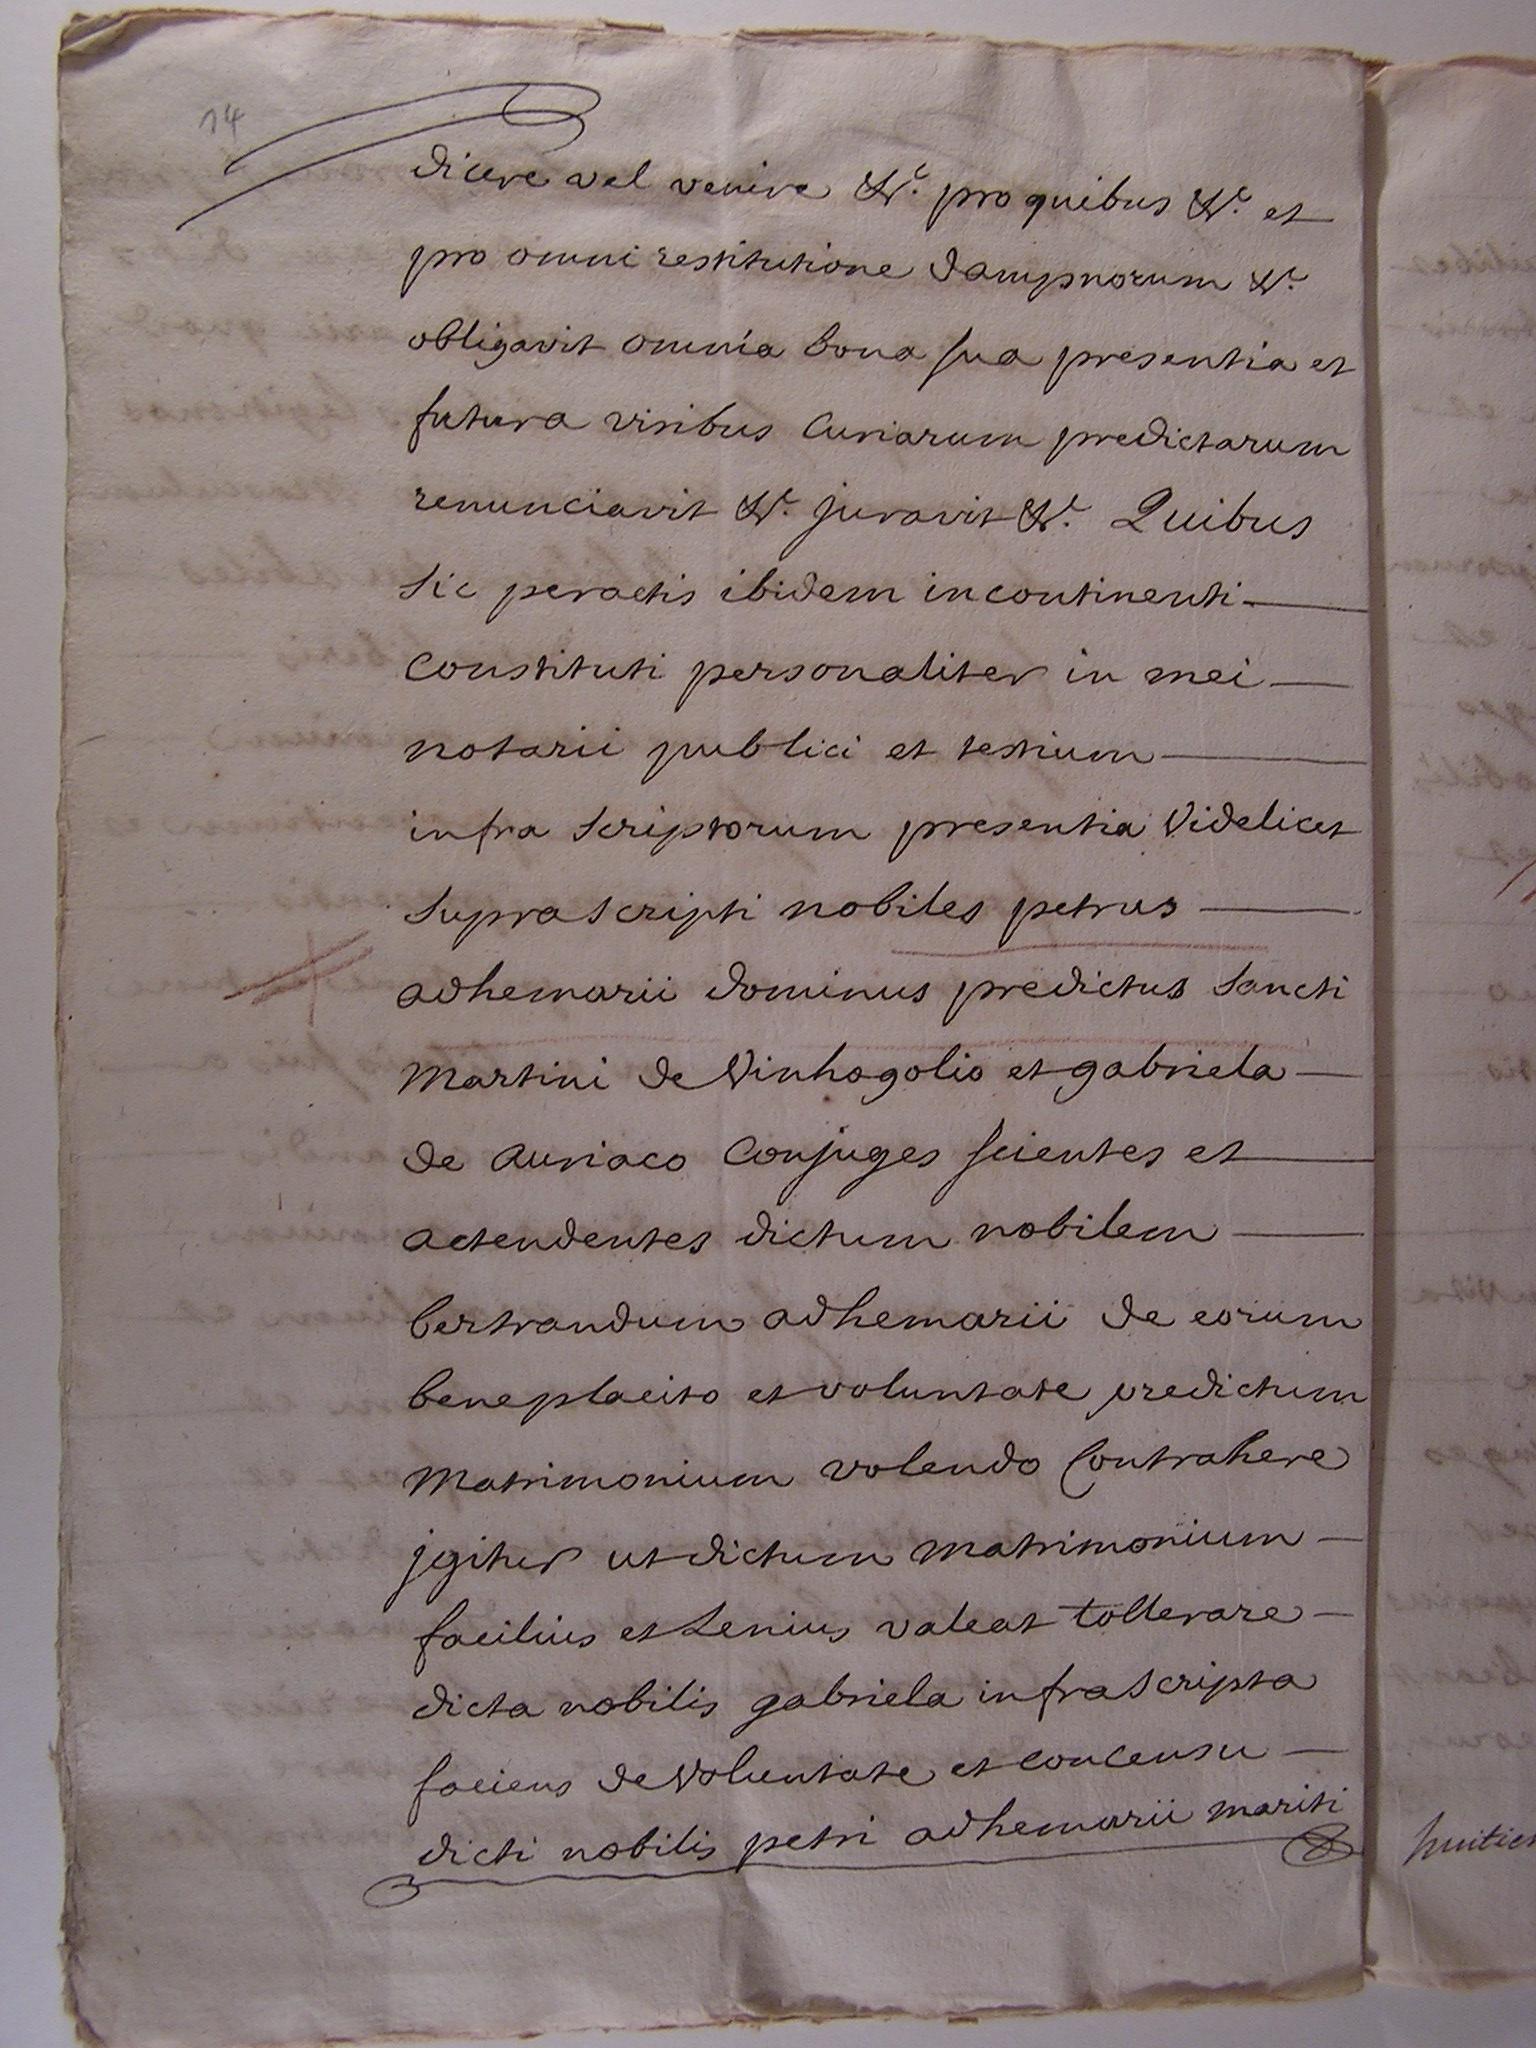 14
dicere vel venire &c. pro quibus &c. et
pro omni restitutione dampnorum &c.
obligavit omnia bona sua presentia et
futura viribus Curiarum predictarum
renunciavit &c. juravit &c. Quibus
sic peractis ibidem incontinenti
Constituti personaliter in mei
notarii publici et testium
infra scriptorum presentia Videlicet
suprascripti nobiles petrus
adhemarii dominus predictus Sancti
Martini de Vinhogolio et gabriela
de auriaco Conjuges scientes et
actendentes dictum nobilem
bertrandum adhemarii de eorum
beneplacito et voluntate predictum
Matrimonium volendo Contrahere
jgitur ut dictum matrimonium
facilius et Lenius valeat tollerare
dicta nobilis gabriela infrascripta
faciens de Voluntate et concensu
dicti nobilis petri adhemarii mariti